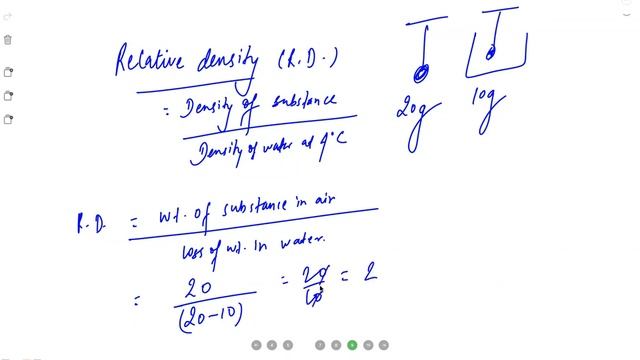 Relative density (R.D.)
= Density of substance
Density of water at 4°C
20g
10g
R.D. = wt. of substance in air
loss of wt. in water.
= 20 = 20 = 2
(20-10) 10